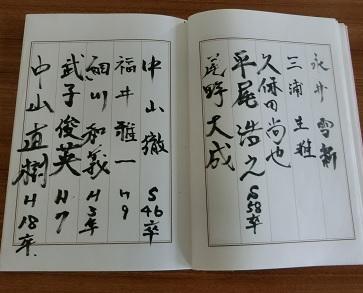 永井 雪新
三浦 生雅
久保田尚也
平尾浩之 S58卒
荒野大成
中山徹 S46卒
福井雅一 H9
細川和義 H3年
武子俊英 H7
中山直樹 H18卒.